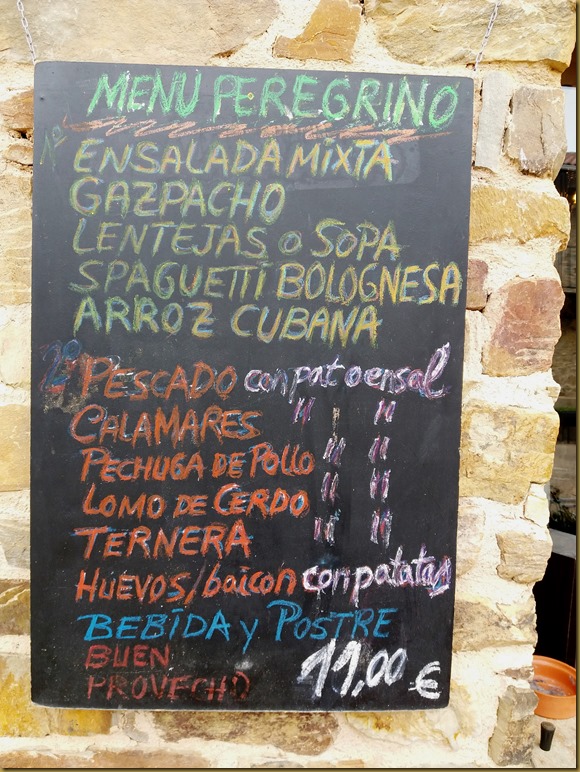 MENU PEREGRINO
1º ENSALADA MIXTA
GAZPACHO
LENTEJAS o SOPA
SPAGUETTI BOLOGNESA
ARROZ CUBANA
2º PESCADO con pat o ensal
CALAMARES " "
PECHUGA DE POLLO " "
LOMO DE CERDO " "
TERNERA " "
HUEVOS/baicon con patatas
BEBIDA y POSTRE
BUEN
PROVECHO
11,00 €